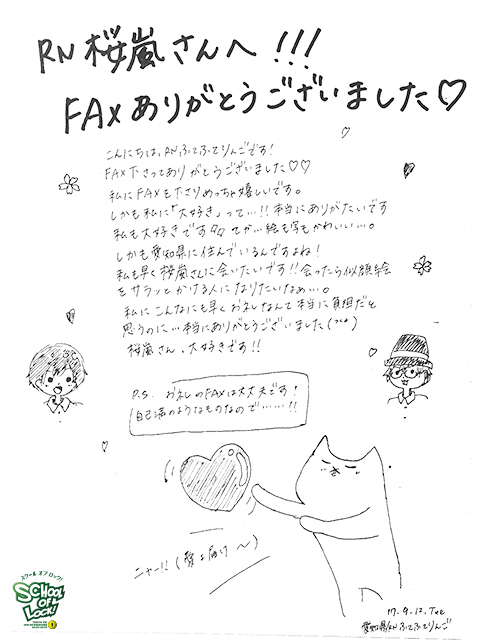 RN 桜嵐さんへ!!!
FAXありがとうございました♡
こんにちは、RNふてふてりんごです!
FAX下さってありがとうございました♡♡
私にFAXを下さりめっちゃ嬉しいです。
しかも私に「大好き」って…!!本当にありがたいです
私も大好きです てか…絵も写もかわいい…。
しかも愛知県に住んでいるんですよね!
私も早く桜嵐さんに会いたいです!!会ったら似顔絵
をサラッとかける人になりたいなぁ…。
私にこんなにも早くお礼なんて本当に負担だと
思うのに…本当にありがとうございました
桜嵐さん、大好きです!!
P.S. お礼のFAXは大丈夫です!
自己満のようなものなので……!!
ニャー!!(愛よ届け〜)
スクール オブ ロック!
SCHOOL OF LOCK!
17.9.12.Tue
愛知県/RNふてふてりんご